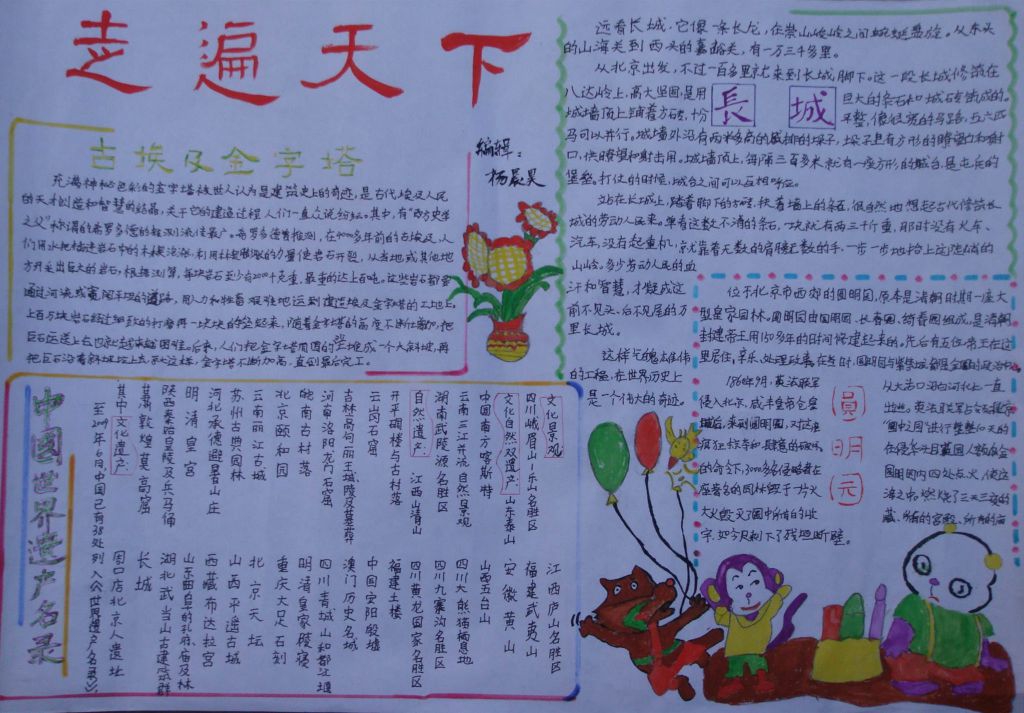 走遍天下
编辑：
杨晨昊
古埃及金字塔
充满神秘色彩的金字塔被世人认为是建筑史上的奇迹，是古代埃及人民
的天才创造和智慧的结晶，关于它的建造过程人们一直众说纷纭。其中，有“西方史学
之父”称谓的希罗多德的推测流传最广。希罗多德曾推测，在4000多年前的古埃及，人
们用水把插进岩石中的木楔浸涨，利用木楔膨涨的力量使岩石开裂，从当地或其他地
方开采出巨大的岩石，根据测算，每块岩石至少有2000千克重，最重的达上百吨。这些岩石都要
通过河流或宽阔平坦的道路，用人力和牲畜艰难地运到建造埃及金字塔的工地上，
上百与块岩石经过细致的打磨再一块块的垒起来，随着金字塔的高度不断地增加，把
巨石运送上去也就越来越困难。后来，人们把金字塔周围的堆成一个大斜坡，再
把巨石沿着斜坡拉上去，就这样，金字塔不断加高，直到最后完工。
长城
远看长城，它像一条长龙，在崇山峻岭之间蜿蜒盘旋。从东头
的山海关到西头的嘉峪关，有一万三千多里。
从北京出发，不过一百多里就来到长城脚下。这一段长城修筑在
八达岭上，高大坚固，是用巨大的条石和城砖筑成的。
城墙顶上铺着方砖，十分平整，像很宽的马路，五六匹
马可以并行。城墙外沿有两米多高的成排的垛子，垛子上有方形的瞭望口和射
口，供瞭望和射击用。城墙顶上，每隔三百多米就有一座方形的城台，是屯兵的
堡垒。打仗的时候，城台之间可以互相呼应。
站在长城上，踏着脚下的方砖，扶着墙上的条石，很自然地想起古代修筑长
城的劳动人民来。单看这数不清的条石，一块就有两三千斤重，那时没有火车、
汽车，没有起重机，就靠着无数的肩膀无数的手，一步一步地抬上这陡峭的
山岭。多少劳动人民的血
汗和智慧，才凝成这
前不见头，后不见尾的万
里长城。
这样气魄雄伟
的工程，在世界历史上
是一个伟大的奇迹。
圆明园
位于北京市西郊的圆明园，原本是清朝时期一座大
型皇家园林。圆明园由圆明园、长春园、绮春园组成，是清朝
封建帝王用150多年的时间修建起来的，先后有五位帝王在这
里居住，享乐，处理政事
1860年9月，英法联军
侵入北京，咸丰皇帝仓皇
的命令下，3000多名侵略者在
座著名的园林毁于一片火
大火毁灭了园中所有的
字，如今只剩下了残垣断壁。
中国世界遗产名录
至2009年6月，中国已有38处列入《世界遗产名录》：
其中文化遗产： 周口店北京人遗址
甘肃敦煌莫高窟 长城
陕西秦始皇陵及兵马俑 湖北武当山古建筑群
明清皇宫 山东曲阜的孔府庙及林
河北承德避暑山庄 西藏布达拉宫
苏州古典园林 山西平遥古城
云南丽江古城 北京天坛
北京颐和园 重庆大足石刻
皖南古村落 明清皇家陵寝
河南洛阳龙门石窟 四川青城山和都江堰
吉林高句丽王城、陵及墓葬 澳门历史名城
云岗石窟 中国安阳殷墟
开平碉楼与古村落 福建土楼
自然遗产： 江西三清山 四川黄龙国家名胜区
湖南武陵源名胜区 四川九寨沟名胜区
云南三江并流自然景观 四川大熊猫栖息地
中国南方喀斯特 山西五台山
文化自然双遗产：山东泰山 安徽黄山
四川峨眉山-乐山名胜区 福建武夷山
文化景观： 江西庐山名胜区